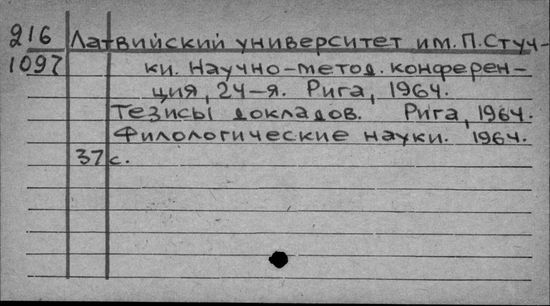 216 Латвийский университет им. П. Стуч-
1097 ки. Научно-метод. конферен-
ция, 24-я. Рига, 1964.
Тезисы докладов. Рига, 1964.
Филологические науки. 1964.
37 с.